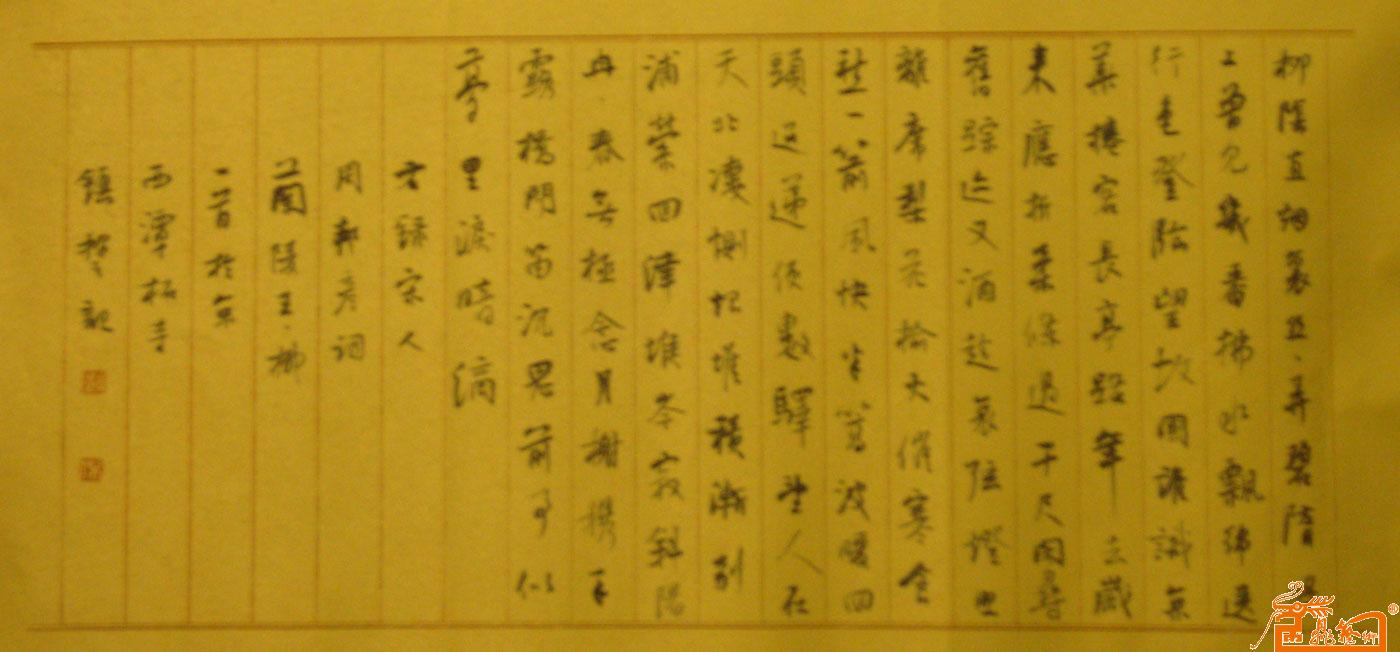 柳陰直烟裏丝、弄碧隋
上曾見幾番拂水飄綿送
行色登臨望故國誰識京
華倦客長亭路年年去歲
來應折柔條過千尺閑尋
舊踪迹又酒趁哀弦燈照
離席梨花榆火催寒食
愁一箭風快半篙波暖回
頭迢遞便數驛望人在
天北凄惻恨堆積漸別
浦縈回津堠岑寂斜陽
冉、春無極念月榭携手
露橋聞笛沉思前事似
夢里淚暗滴
右録宋人
周邦彦詞
蘭陵王·柳
一首於京
西潭柘寺
鎮 記